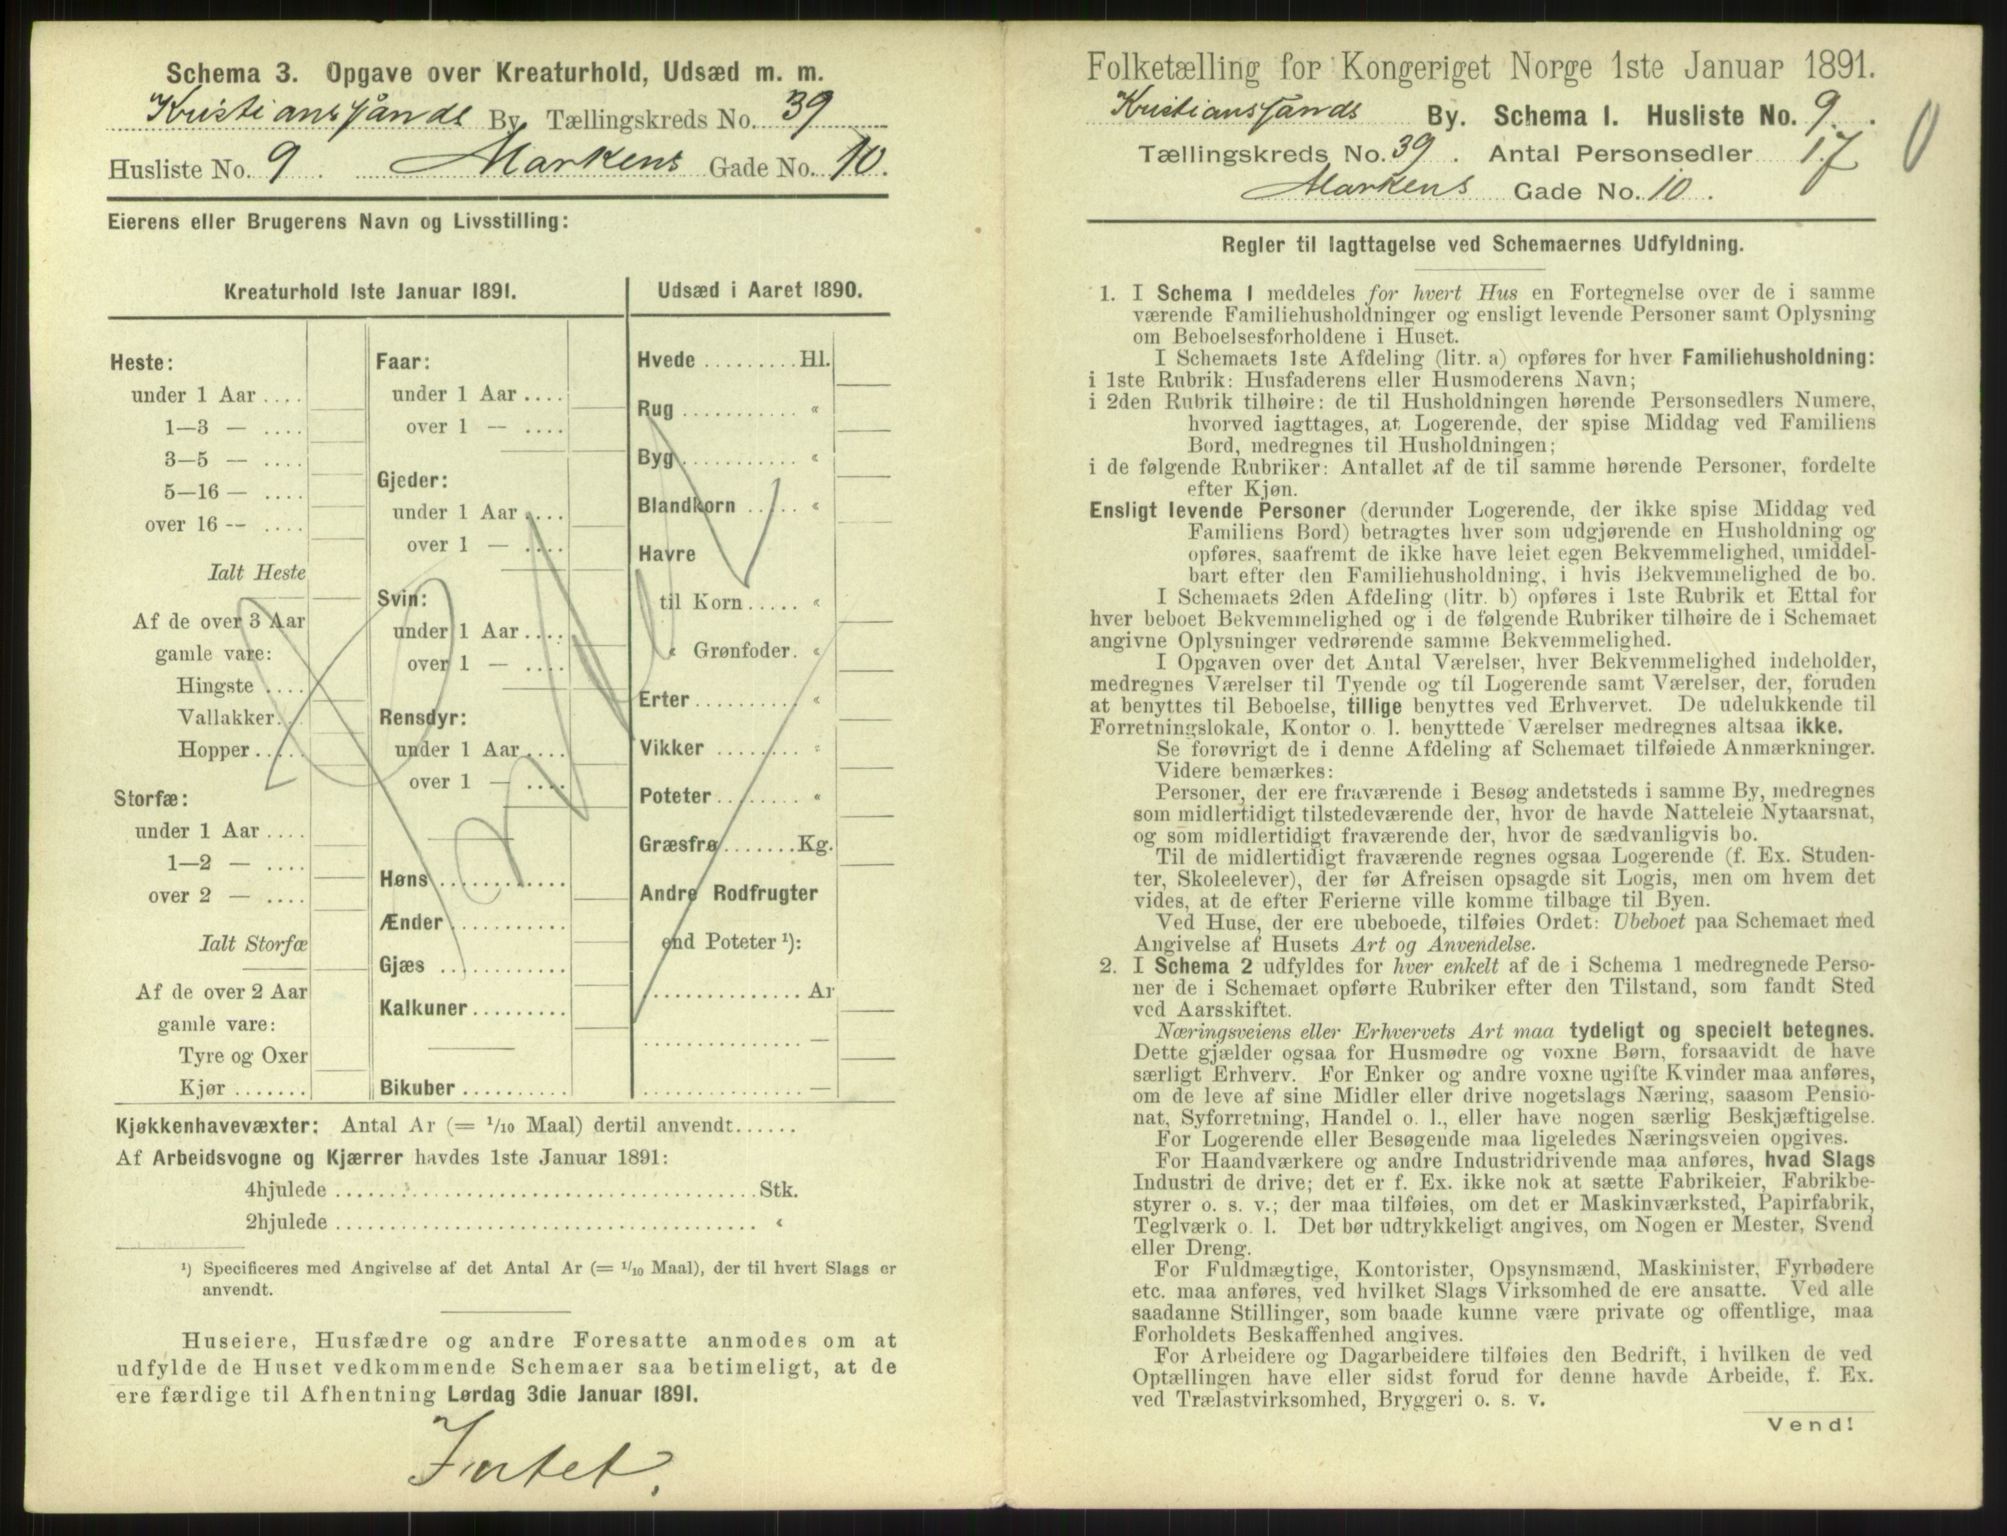 Schema 3. Opgave over Kreaturhold, Udsæd m. m.
Kristianssands By Tællingskreds No. 39
Husliste No. 9. Markens Gade No. 10.
Eierens eller Brugerens Navn og Livsstilling:
Kreaturhold 1ste Januar 1891.
Heste:
under 1 Aar ....
1—3 — ....
3—5 — ....
5—16 — ....
over 16 -- ....
Ialt Heste
Af de over 3 Aar
gamle vare:
Hingste ....
Vallakker...
Hopper ....
Storfæ:
under 1 Aar ....
1—2 — ....
over 2 — ....
Ialt Storfæ
Af de over 2 Aar
gamle vare:
Tyre og Oxer
Kjør .......
Faar:
under 1 Aar ....
over 1 — ....
Gjeder:
under 1 Aar ....
over 1 — ....
Svin:
under 1 Aar ....
over 1 — ....
Rensdyr:
under 1 Aar ....
over 1 — ....
Høns ............
Ænder ..........
Gjæs ...........
Kalkuner.........
Bikuber ..........
Udsæd i Aaret 1890.
Hvede .........Hl.
Rug ........... «
Byg............ «
Blandkorn ..... «
Havre
til Korn..... «
« Grønfoder. «
Erter.......... «
Vikker ........ «
Poteter ........ «
Græsfrø .......Kg.
Andre Rodfrugter
end Poteter ¹):
.............. Ar
................ —
................ —
Kjøkkenhavevæxter: Antal Ar (= 1/10 Maal) dertil anvendt......
Af Arbeidsvogne og Kjærrer havdes 1ste Januar 1891:
4hjulede ........................................Stk.
2hjulede ........................................ «
¹) Specificeres med Angivelse af det Antal Ar (= 1/10 Maal), der til hvert Slags er
anvendt.
Huseiere, Husfædre og andre Foresatte anmodes om at
udfylde de Huset vedkommende Schemaer saa betimeligt, at de
ere færdige til Afhentning Lørdag 3die Januar 1891.
Intet.
Folketælling for Kongeriget Norge 1ste Januar 1891.
Kristianssands By. Schema I. Husliste No. 9.
Tællingskreds No. 39. Antal Personsedler 17
Markens Gade No. 10.
0
Regler til Iagttagelse ved Schemaernes Udfyldning.
1. I Schema I meddeles for hvert Hus en Fortegnelse over de i samme
værende Familiehusholdninger og ensligt levende Personer samt Oplysning
om Beboelsesforholdene i Huset.
I Schemaets 1ste Afdeling (litr. a) opføres for hver Familiehusholdning:
i 1ste Rubrik: Husfaderens eller Husmoderens Navn;
i 2den Rubrik tilhøire: de til Husholdningen hørende Personsedlers Numere,
hvorved iagttages, at Logerende, der spise Middag ved Familiens
Bord, medregnes til Husholdningen;
i de følgende Rubriker: Antallet af de til samme hørende Personer, fordelte
efter Kjøn.
Ensligt levende Personer (derunder Logerende, der ikke spise Middag ved
Familiens Bord) betragtes hver som udgjørende en Husholdning og
opføres, saafremt de ikke have leiet egen Bekvemmelighed, umiddel-
bart efter den Familiehusholdning, i hvis Bekvemmelighed de bo.
I Schemaets 2den Afdeling (litr. b) opføres i 1ste Rubrik et Ettal for
hver beboet Bekvemmelighed og i de følgende Rubriker tilhøire de i Schemaet
angivne Oplysninger vedrørende samme Bekvemmelighed.
I Opgaven over det Antal Værelser, hver Bekvemmelighed indeholder,
medregnes Værelser til Tyende og til Logerende samt Værelser, der, foruden
at benyttes til Beboelse, tillige benyttes ved Erhvervet. De udelukkende til
Forretningslokale, Kontor o. l. benyttede Værelser medregnes altsaa ikke.
Se forøvrigt de i denne Afdeling af Schemaet tilføiede Anmærkninger.
Videre bemærkes:
Personer, der ere fraværende i Besøg andetsteds i samme By, medregnes
som midlertidigt tilstedeværende der, hvor de havde Natteleie Nytaarsnat,
og som midlertidigt fraværende der, hvor de sædvanligvis bo.
Til de midlertidigt fraværende regnes ogsaa Logerende (f. Ex. Studen-
ter, Skoleelever), der før Afreisen opsagde sit Logis, men om hvem det
vides, at de efter Ferierne ville komme tilbage til Byen.
Ved Huse, der ere ubeboede, tilføies Ordet: Ubeboet paa Schemaet med
Angivelse af Husets Art og Anvendelse.
2. I Schema 2 udfyldes for hver enkelt af de i Schema 1 medregnede Perso-
ner de i Schemaet opførte Rubriker efter den Tilstand, som fandt Sted
ved Aarsskiftet.
Næringsveiens eller Erhvervets Art maa tydeligt og specielt betegnes.
Dette gjælder ogsaa for Husmødre og voxne Børn, forsaavidt de have
særligt Erhverv. For Enker og andre voxne ugifte Kvinder maa anføres,
om de leve af sine Midler eller drive nogetslags Næring, saasom Pensio-
nat, Syforretning, Handel o. l., eller have nogen særlig Beskjæftigelse.
For Logerende eller Besøgende maa ligeledes Næringsveien opgives.
For Haandværkere og andre Industridrivende maa anføres, hvad Slags
Industri de drive; det er f. Ex. ikke nok at sætte Fabrikeier, Fabrikbe-
styrer o. s. v.; der maa tilføies, om det er Maskinværksted, Papirfabrik,
Teglværk o. l. Det bør udtrykkeligt angives, om Nogen er Mester, Svend
eller Dreng.
For Fuldmægtige, Kontorister, Opsynsmænd, Maskinister, Fyrbødere
etc. maa anføres, ved hvilket Slags Virksomhed de ere ansatte. Ved alle
saadanne Stillinger, som baade kunne være private og offentlige, maa
Forholdets Beskaffenhed angives.
For Arbeidere og Dagarbeidere tilføies den Bedrift, i hvilken de ved
Optællingen have eller sidst forud for denne havde Arbeide, f. Ex.
ved Trælastvirksomhed, Bryggeri o. s. v.
Vend!